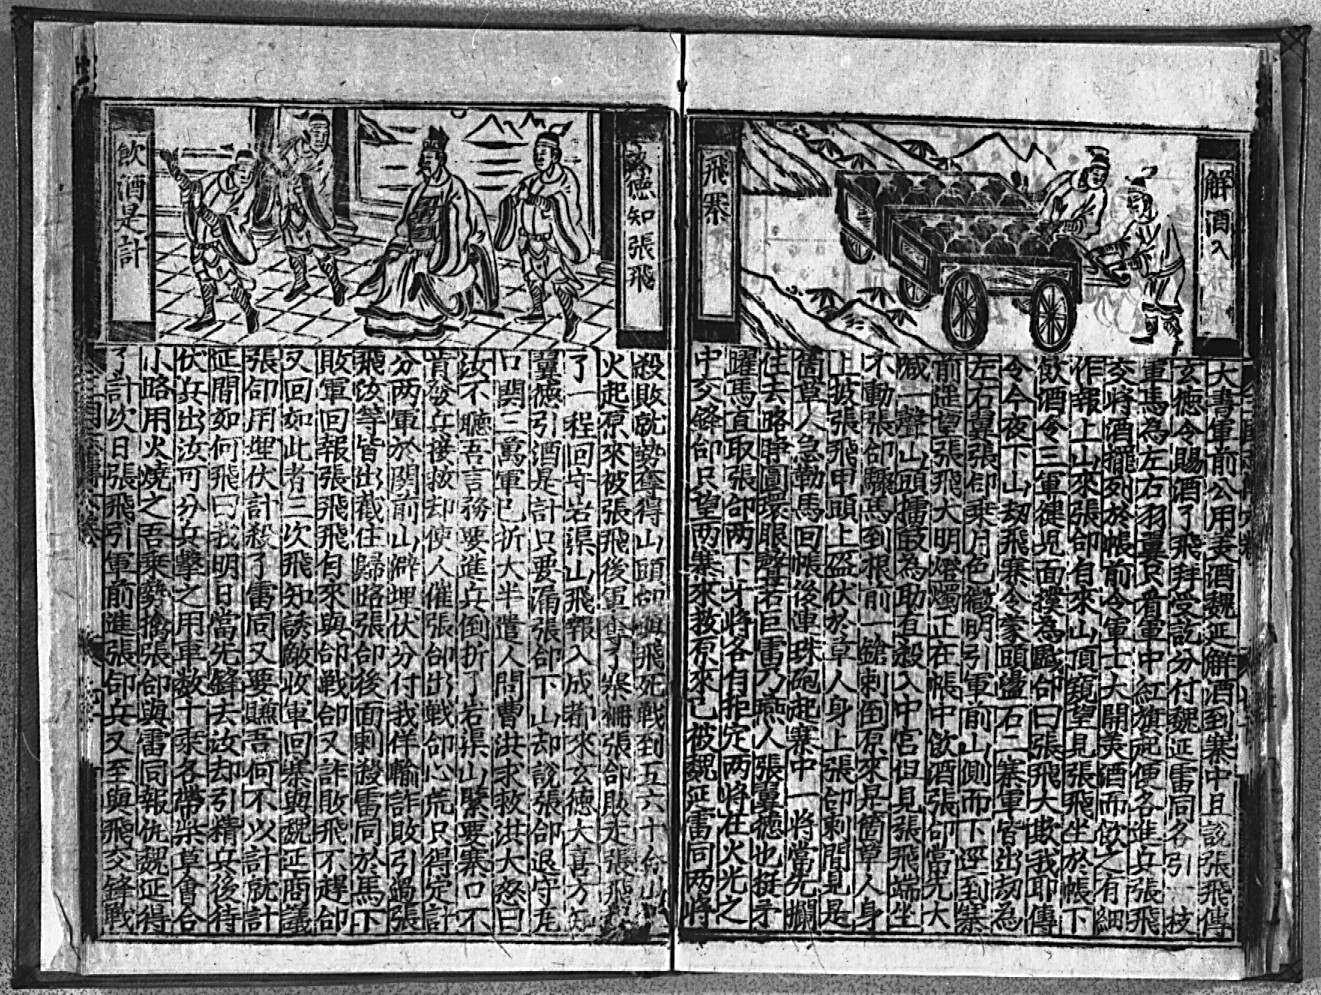 解酒入
飛寨
大書軍前公用美酒魏延解酒到寨中且說張飛傳
玄德令賜酒了飛拜受訖分付魏延雷同各引一枝
軍馬為左右羽翼只看軍中紅旗起便各進兵張飛
交將酒擺列於帳前令軍士大開美酒而飲之有細
作報上山來張郃自來山頂窺望見張飛坐於帳下
飲酒令三軍健兒面撲為戲郃曰張飛大欺我耶傳
令今夜下山刼飛寨令蒙頭盪石二寨軍皆出刼為
左右翼張郃乘月色微明引軍前山側而下逕到寨
前遥望張飛大明燈燭正在帳中飲酒張郃當先大
喊一聲山頭擂鼓為助直殺入中宮但見張飛端坐
不動張郃驟馬到根前一鎗刺倒原來是箇草人身
上披張飛甲頭上盔伏於草人身上張郃刺間見是
箇草人急勒馬回帳後連珠砲起寨中一將當先攔
住去路睜圓環眼聲若巨雷乃燕人張翼德也挺矛
躍馬直取張郃兩下才將各有拒定兩將在火光之
中交鋒郃只望兩寨來救原來已被魏延雷同兩將
翼德知張飛
飲酒是計
殺敗就勢奪得山頭郃與飛死戰到五六十合山
火起原來被張飛後軍奪了寨柵張郃敗走張飛
了一程回守岩渠山飛報入成都來玄德大喜方知
翼德引酒是計只要漏張郃下山却說張郃退守瓦
口関三萬軍已折大半遣人問曹洪求救洪大怒曰
汝不聽吾言務要進兵倒折了岩渠山緊要寨口不
肯發兵接救却使人催張郃出戰郃心荒只得定計
分两軍於関前山僻埋伏分付我佯輸詐敗引過張
飛汝等皆出截住歸路張郃後面刺殺雷同於馬下
敗軍回報張飛飛自來與郃戰郃又詐敗飛不趕郃
又回如此者三次飛知誘敵收軍回寨與魏延商議
張郃用埋伏計殺了雷同又要賺吾何不以計就計
延問如何飛曰我明日當先鋒去汝却引精兵後待
伏兵出汝可分兵擊之用車数十乘各帶柴草會合
小路用火燒之吾乘勢擒張郃與雷同報仇魏延得
了計次日張飛引軍前進張郃兵又至與飛交鋒戰